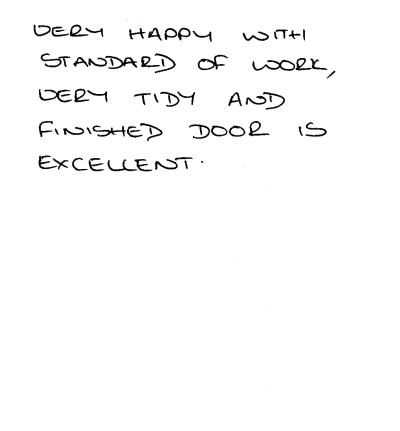 VERY HAPPY WITH
STANDARD OF WORK,
VERY TIDY AND
FINISHED DOOR IS
EXCELLENT.